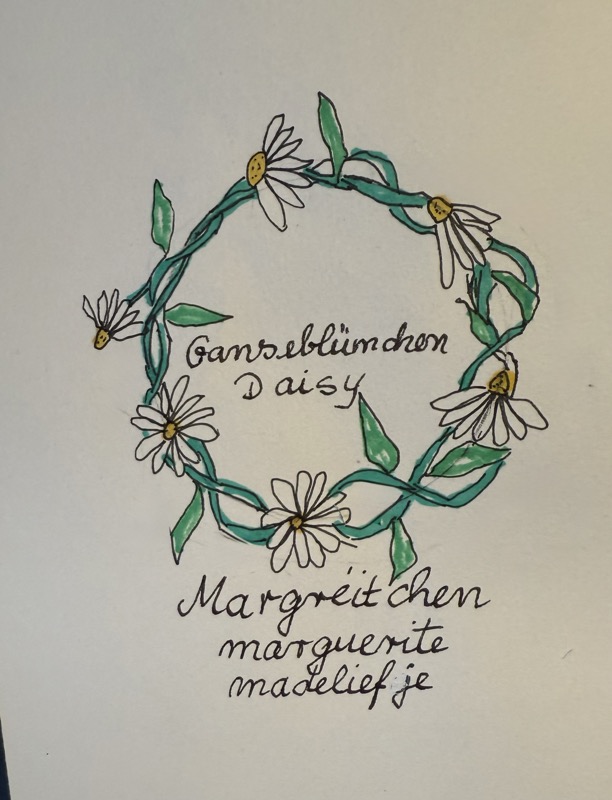 Ganseblümchen
Daisy
Margréitchen
marguerite
madeliefje